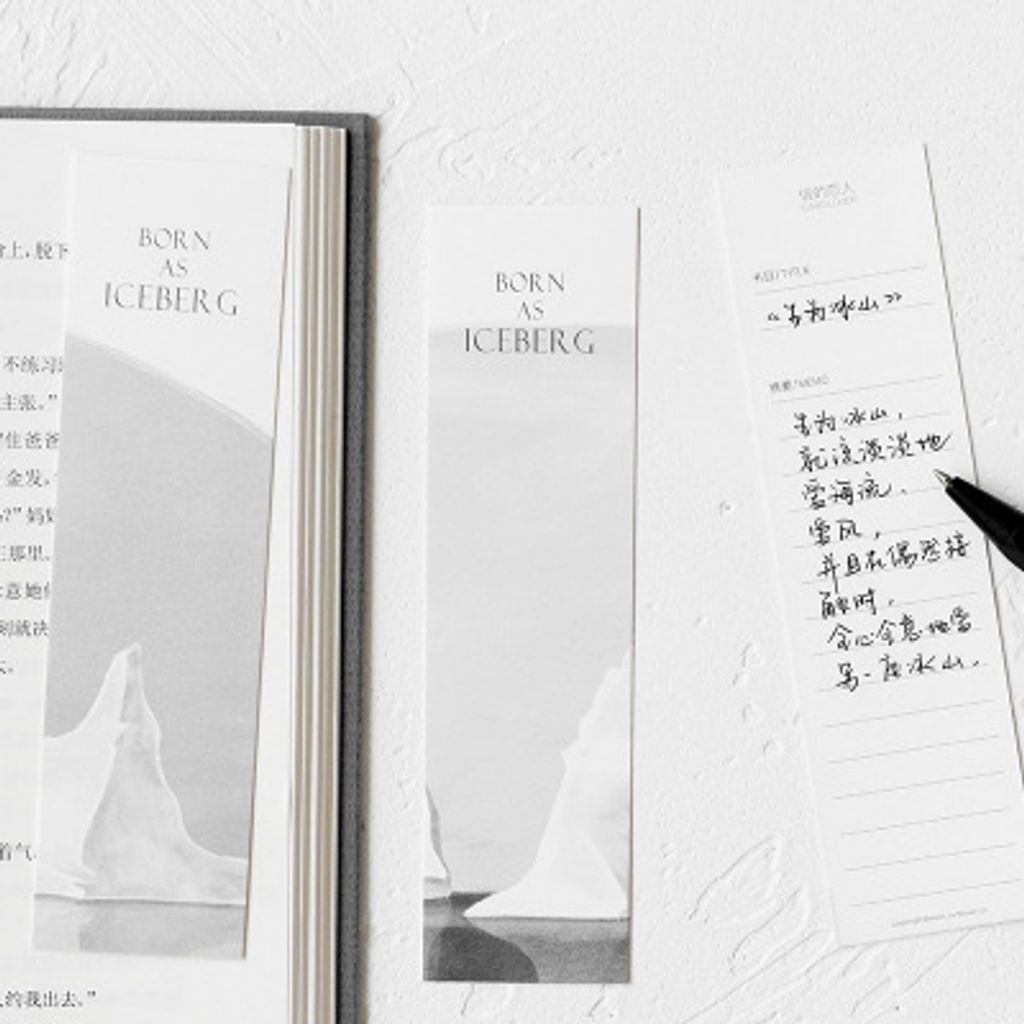 上，脱下
不练习
主张。”
住爸爸
金发，
?”妈妈
那里。
意她
刻就决
着气
约我出去。”
BORN
AS
ICEBERG
BORN
AS
ICEBERG
书目/TITLE
《生为冰山》
摘要/MEMO
生为冰山，
就该漠漠地
爱海流，
爱风，
并且在偶然接
触时，
全心全意地爱
另一座冰山。